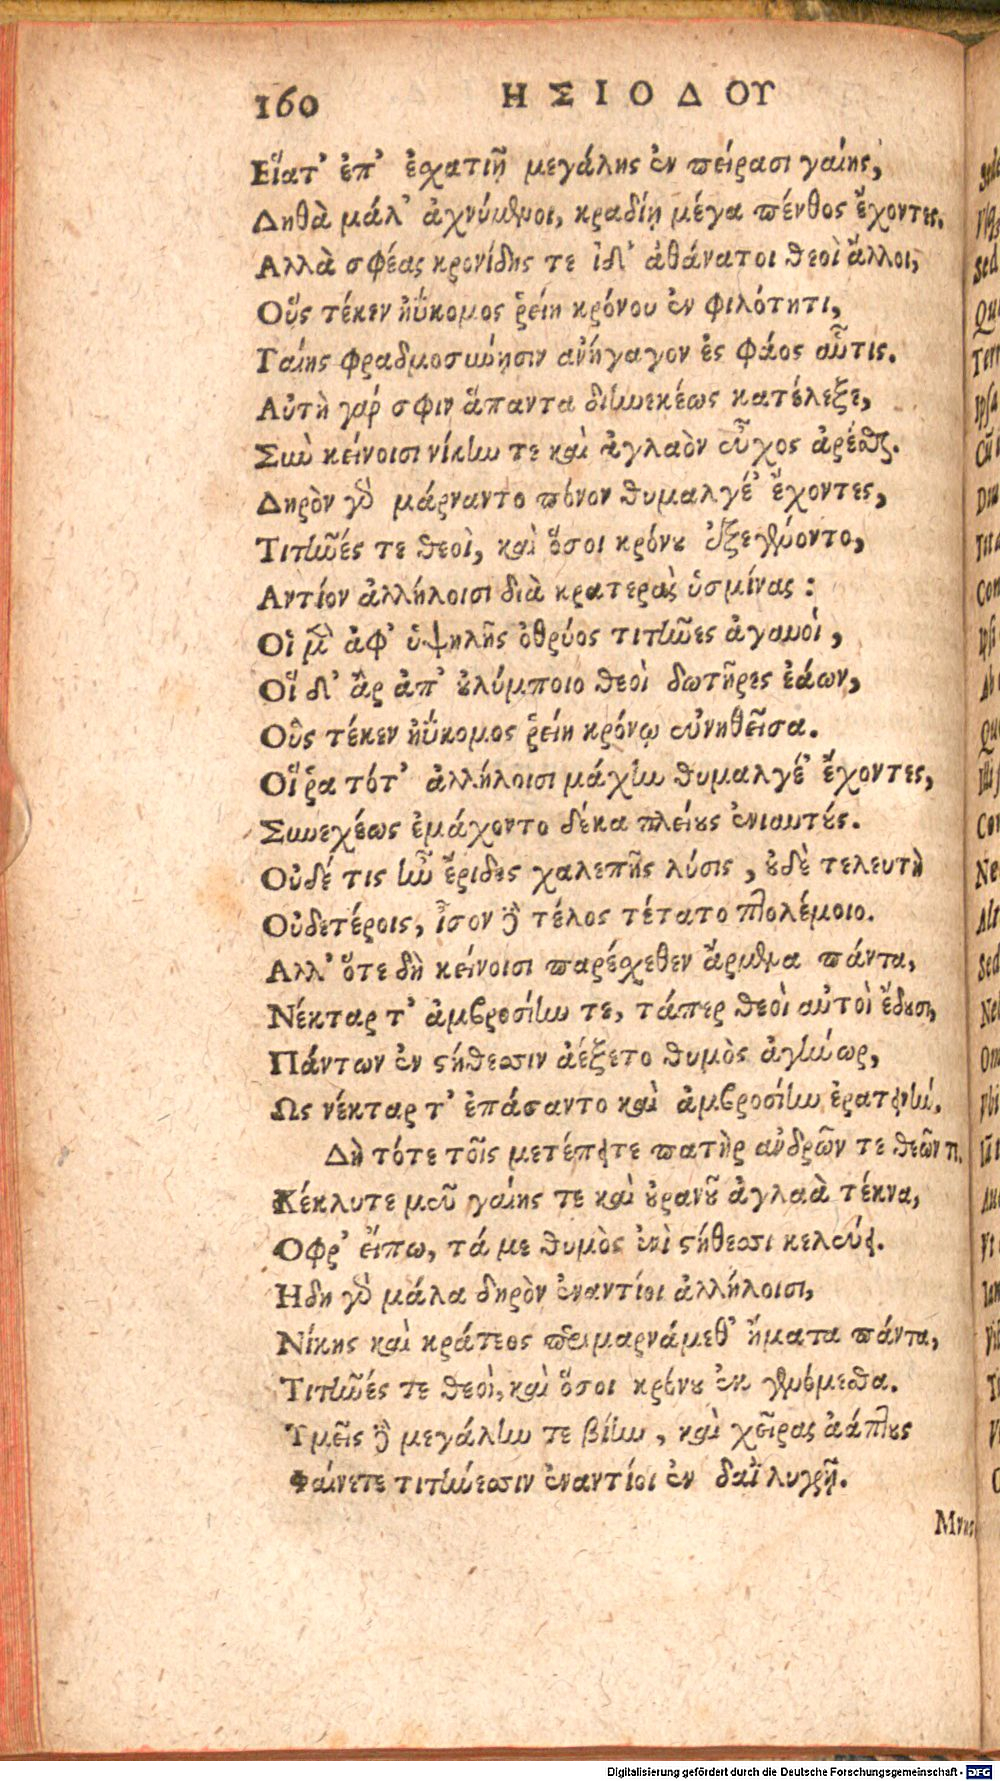 160 ΗΣΙΟΔΟΥ
Εἵατ' ἐπ' ἐχατιῇ μεγάλης ἐν πείρασι γαίης,
Δηθὰ μάλ' ἀχνύμενοι, κραδίῃ μέγα πένθος ἔχοντες.
Αλλὰ σφέας κρονίδης τε ἰδ' ἀθάνατοι θεοὶ ἄλλοι,
Οὕς τέκεν ἠΰκομος ῥείη κρόνου ἐν φιλότητι,
Γαίης φραδμοσύνῃσιν ἀνήγαγον ἐς φάος αὖτις.
Αὐτὴ γάρ σφιν ἅπαντα διηνεκέως κατέλεξε,
Σὺν κείνοισι νίκην τε καὶ ἀγλαὸν εὖχος ἀρέσθαι.
Δηρὸν γὰρ μάρναντο πόνον θυμαλγέ' ἔχοντες,
Τιτῆνές τε θεοὶ, καὶ ὅσοι κρόνου ἐξεγένοντο,
Αντίον ἀλλήλοισι διὰ κρατερὰς ὑσμίνας :
Οἱ μὲν ἀφ' ὑψηλῆς ὀθρύος τιτῆνες ἀγαυοὶ,
Οἵ δ' ἄρ ἀπ' οὐλύμποιο θεοὶ δωτῆρες ἐάων,
Οὓς τέκεν ἠΰκομος ῥείη κρόνῳ εὐνηθεῖσα.
Οἵ ῥα τότ' ἀλλήλοισι μάχην θυμαλγέ' ἔχοντες,
Συνεχέως ἐμάχοντο δέκα πλείους ἐνιαυτούς.
Οὐδέ τις ἦν ἔριδος χαλεπῆς λύσις, οὐδὲ τελευτὴ
Οὐδετέροις, ἶσον δὲ τέλος τέτατο πτολέμοιο.
Αλλ' ὅτε δὴ κείνοισι παρέσχεθεν ἄρμενα πάντα,
Νέκταρ τ' ἀμβροσίην τε, τάπερ θεοὶ αὐτοὶ ἔδουσι,
Πάντων ἐν στήθεσσιν ἀέξετο θυμὸς ἀγήνωρ,
Ως νέκταρ τ' ἐπάσαντο καὶ ἀμβροσίην ἐρατεινήν.
Δὴ τότε τοῖς μετέειπε πατὴρ ἀνδρῶν τε θεῶν τε.
Κέκλυτε μοῦ γαίης τε καὶ οὐρανοῦ ἀγλαὰ τέκνα,
Οφρ' εἴπω, τά με θυμὸς ἐνὶ στήθεσσι κελεύει.
Ηδη γὰρ μάλα δηρὸν ἐναντίοι ἀλλήλοισι,
Νίκης καὶ κράτεος περιμαρνάμεθ' ἤματα πάντα,
Τιτῆνές τε θεοὶ, καὶ ὅσοι κρόνου ἐκ γενόμεσθα.
Υμεῖς δὲ μεγάλην τε βίην, καὶ χεῖρας ἀάπτους
Φαίνετε τιτήνεσσιν ἐναντίοι ἐν δαῒ λυγρῇ.
Digitalisierung gefördert durch die Deutsche Forschungsgemeinschaft - DFG